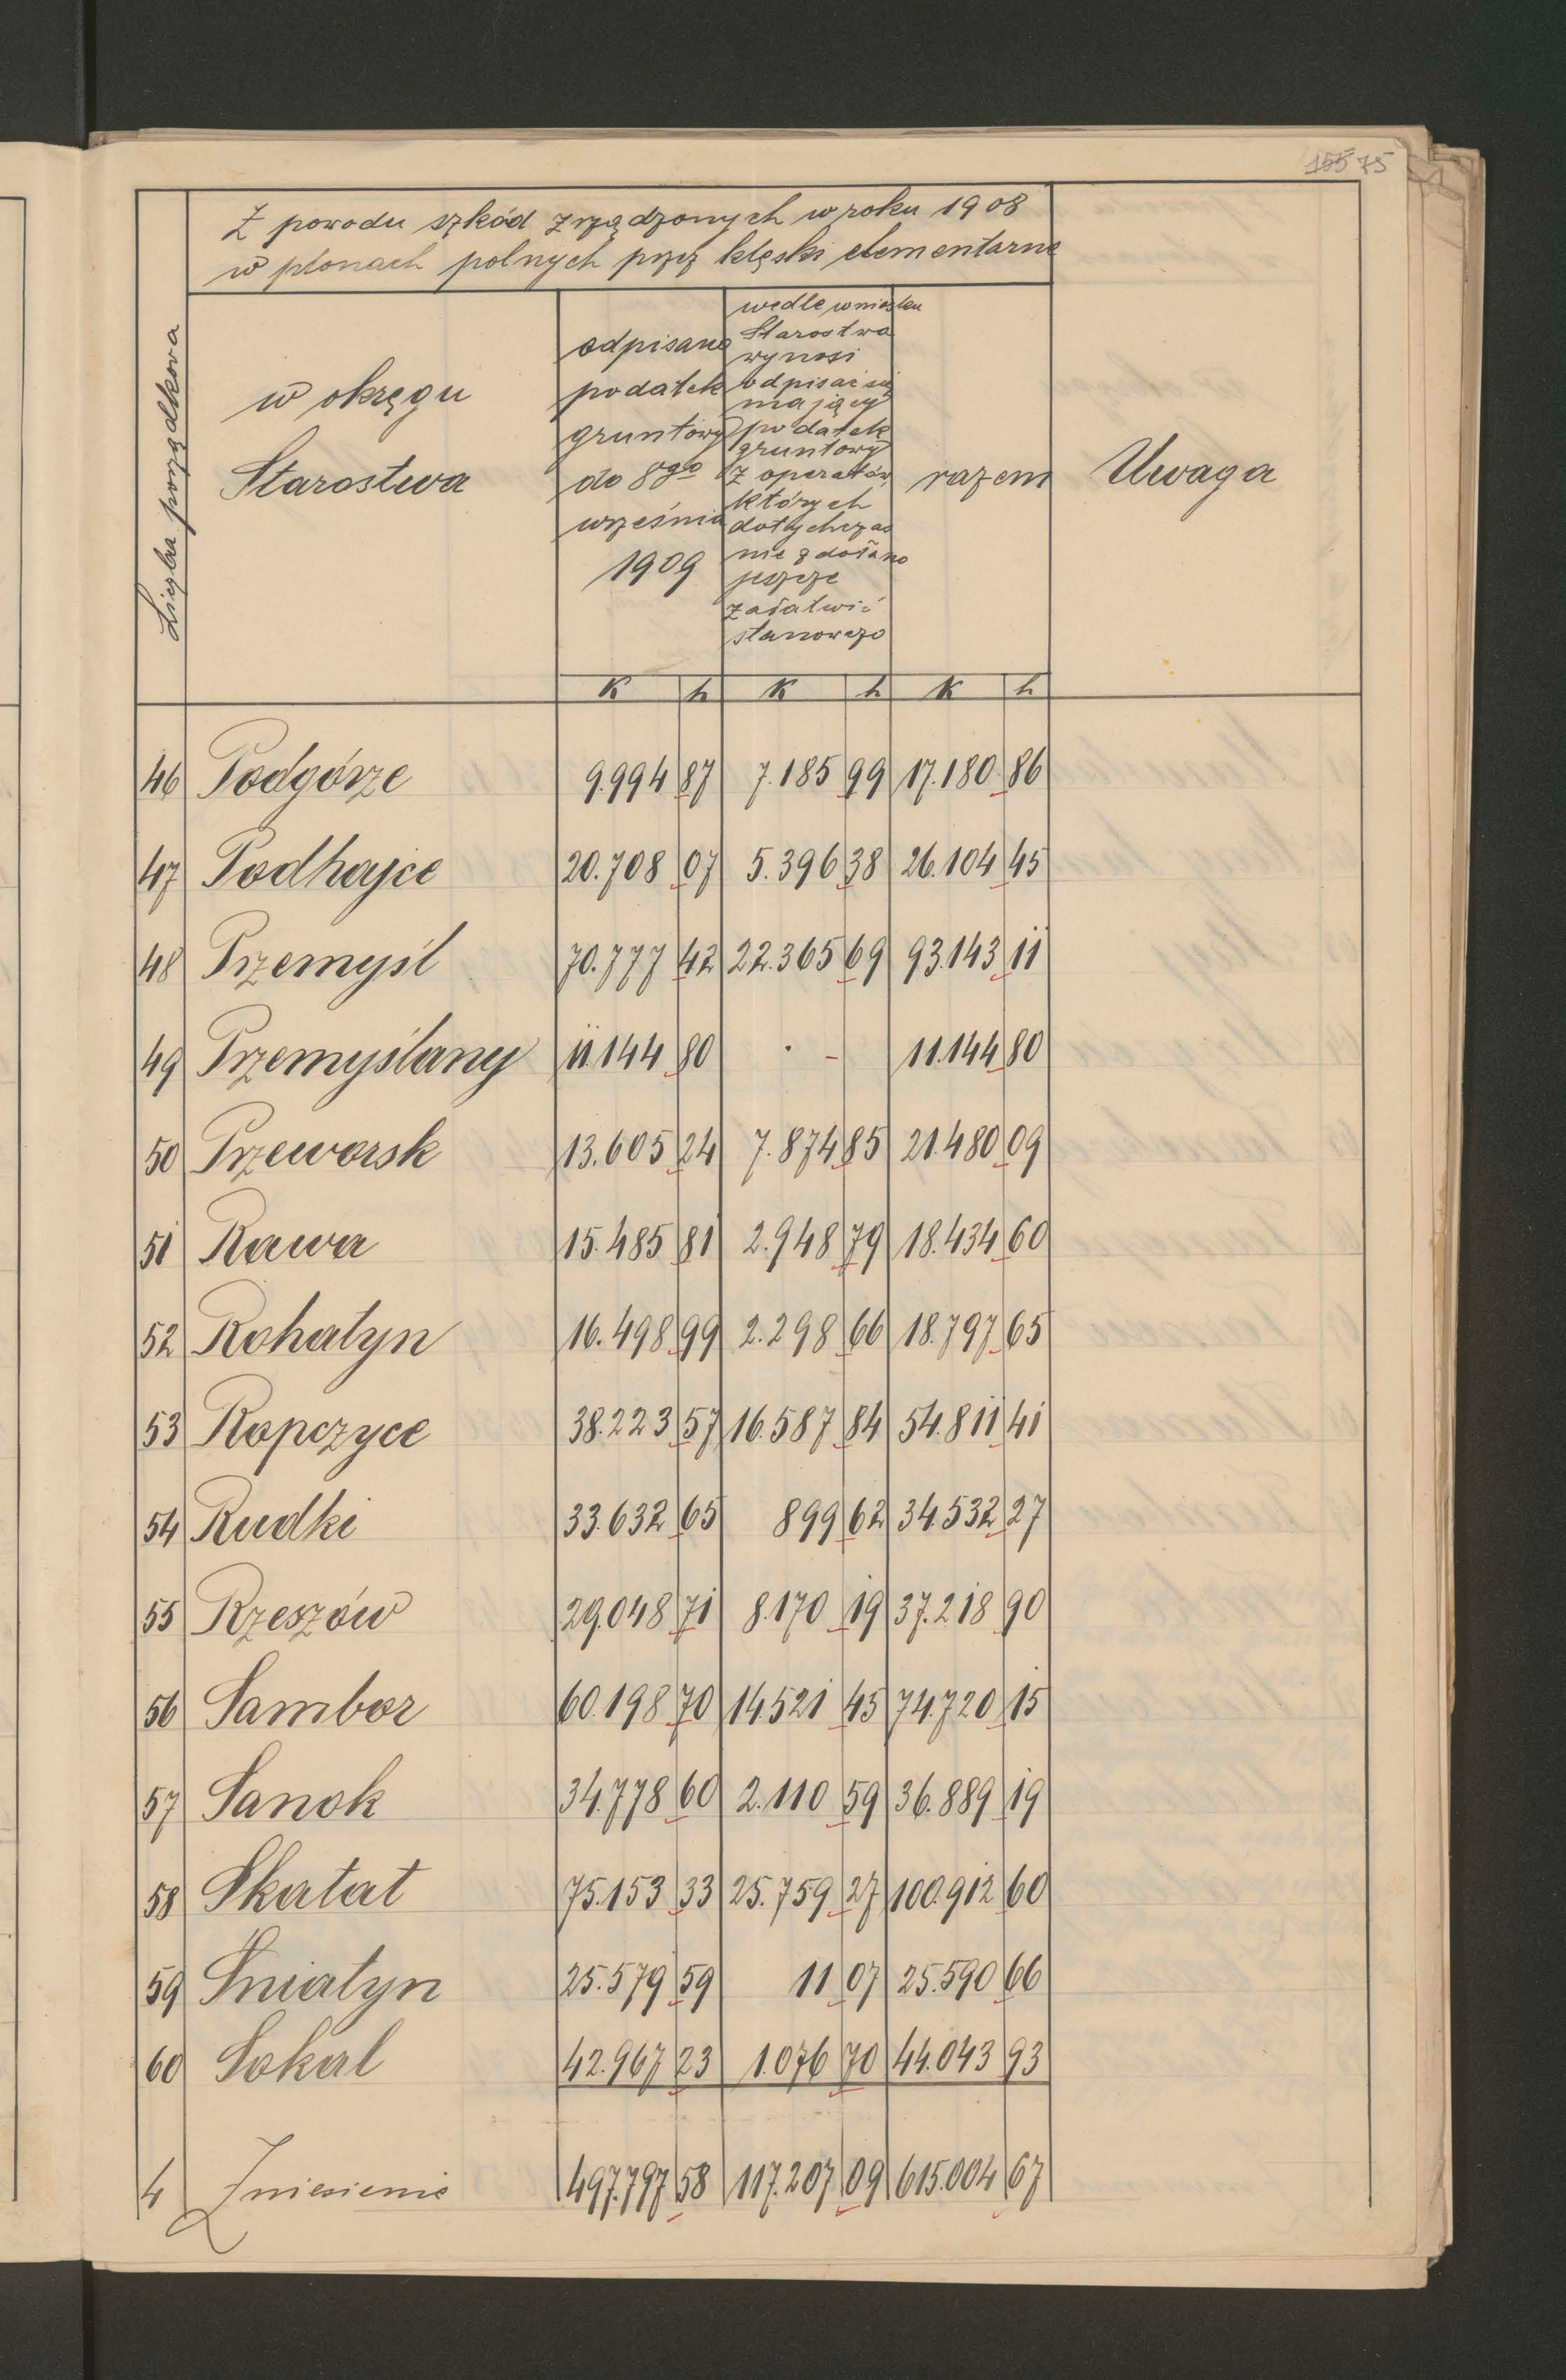 155 75
Z powodu szkód zrządzonych w roku 1908
w plonach polnych przez klęski elementarne
Liczba porządkowa
w okręgu
Starostwa
odpisano
podatek
gruntowy
do 8go
września
1909
wedle wniosku
Starostwa
wynosi
odpisać się
mający
podatek
gruntowy
z operatów
których
dotychczas
nie zdołano
jeszcze
załatwić
stanowczo
razem
Uwaga
K h K h K h
46 Podgórze 9.994 87 7.185 99 17.180 86
47 Podhajce 20.708 07 5.396 38 26.104 45
48 Przemyśl 70.777 42 22.365 69 93.143 11
49 Przemyślany 11.144 80 · - 11.144 80
50 Przeworsk 13.605 24 7.874 85 21.480 09
51 Rawa 15.485 81 2.948 79 18.434 60
52 Rohatyn 16.498 99 2.298 66 18.797 65
53 Ropczyce 38.223 57 16.587 84 54.811 41
54 Rudki 33.632 65 899 62 34.532 27
55 Rzeszów 29.048 71 8.170 19 37.218 90
56 Sambor 60.198 70 14.521 45 74.720 15
57 Sanok 34.778 60 2.110 59 36.889 19
58 Skałat 75.153 33 25.759 27 100.912 60
59 Śniatyn 25.579 59 11 07 25.590 66
60 Sokal 42.967 23 1.076 70 44.043 93
4 Zniesienie 497.797 58 117.207 09 615.004 67